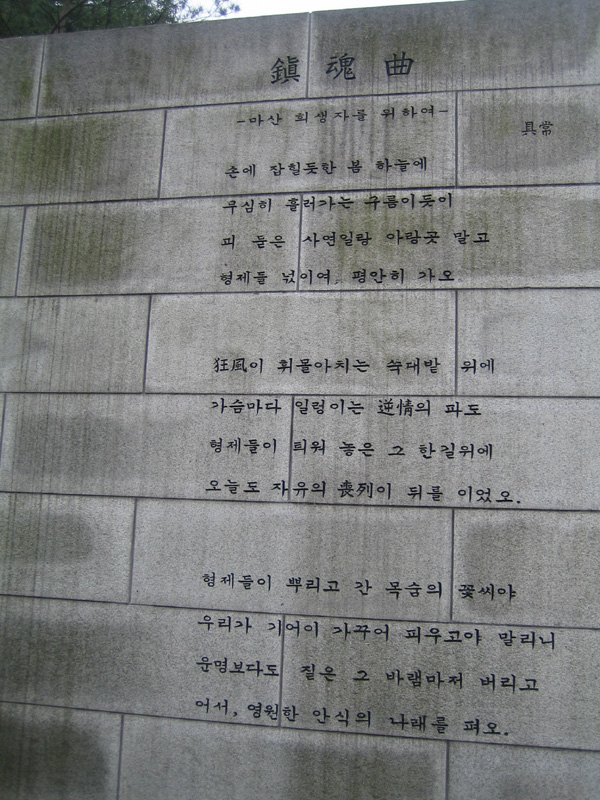 鎭魂曲
-마산 희생자를 위하여-
具常
손에 잡힐듯한 봄 하늘에
무심히 흘러가는 구름이듯이
피 묻은 사연일랑 아랑곳 말고
형제들 넋이여, 평안히 가오
狂風이 휘몰아치는 쑥대밭 위에
가슴마다 일렁이는 逆情의 파도
형제들이 틔워 놓은 그 한길위에
오늘도 자유의 喪列이 뒤를 이었오.
형제들이 뿌리고 간 목숨의 꽃씨야
우리가 기어이 가꾸어 피우고야 말리니
운명보다도 짙은 그 바램마저 버리고
어서, 영원한 안식의 나래를 펴오.